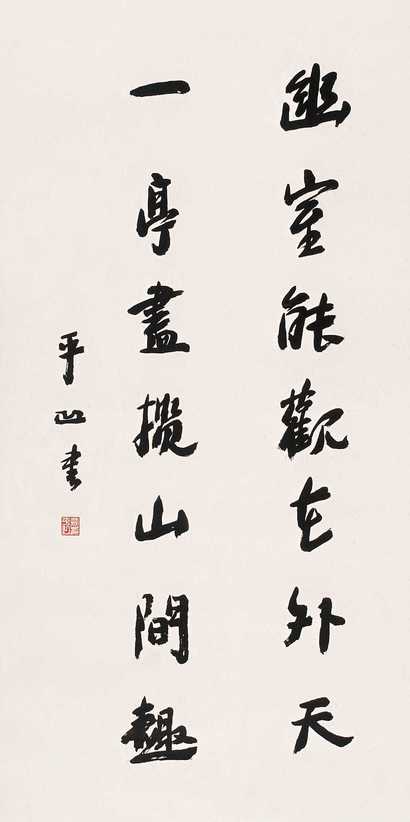 幽室能觀在外天
一亭盡攬山間趣
平山書